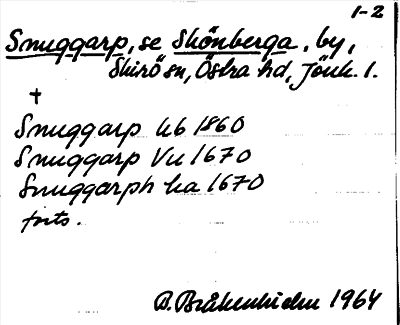 1-2
Snuggarp, se Skönberga, by,
Skirö sn, Östra hd, Jönk. l.
†
Snuggarp hb 1860
Snuggarp Vu 1670
Snuggarph ha 1670
forts.
B. Bråkenhielm 1964